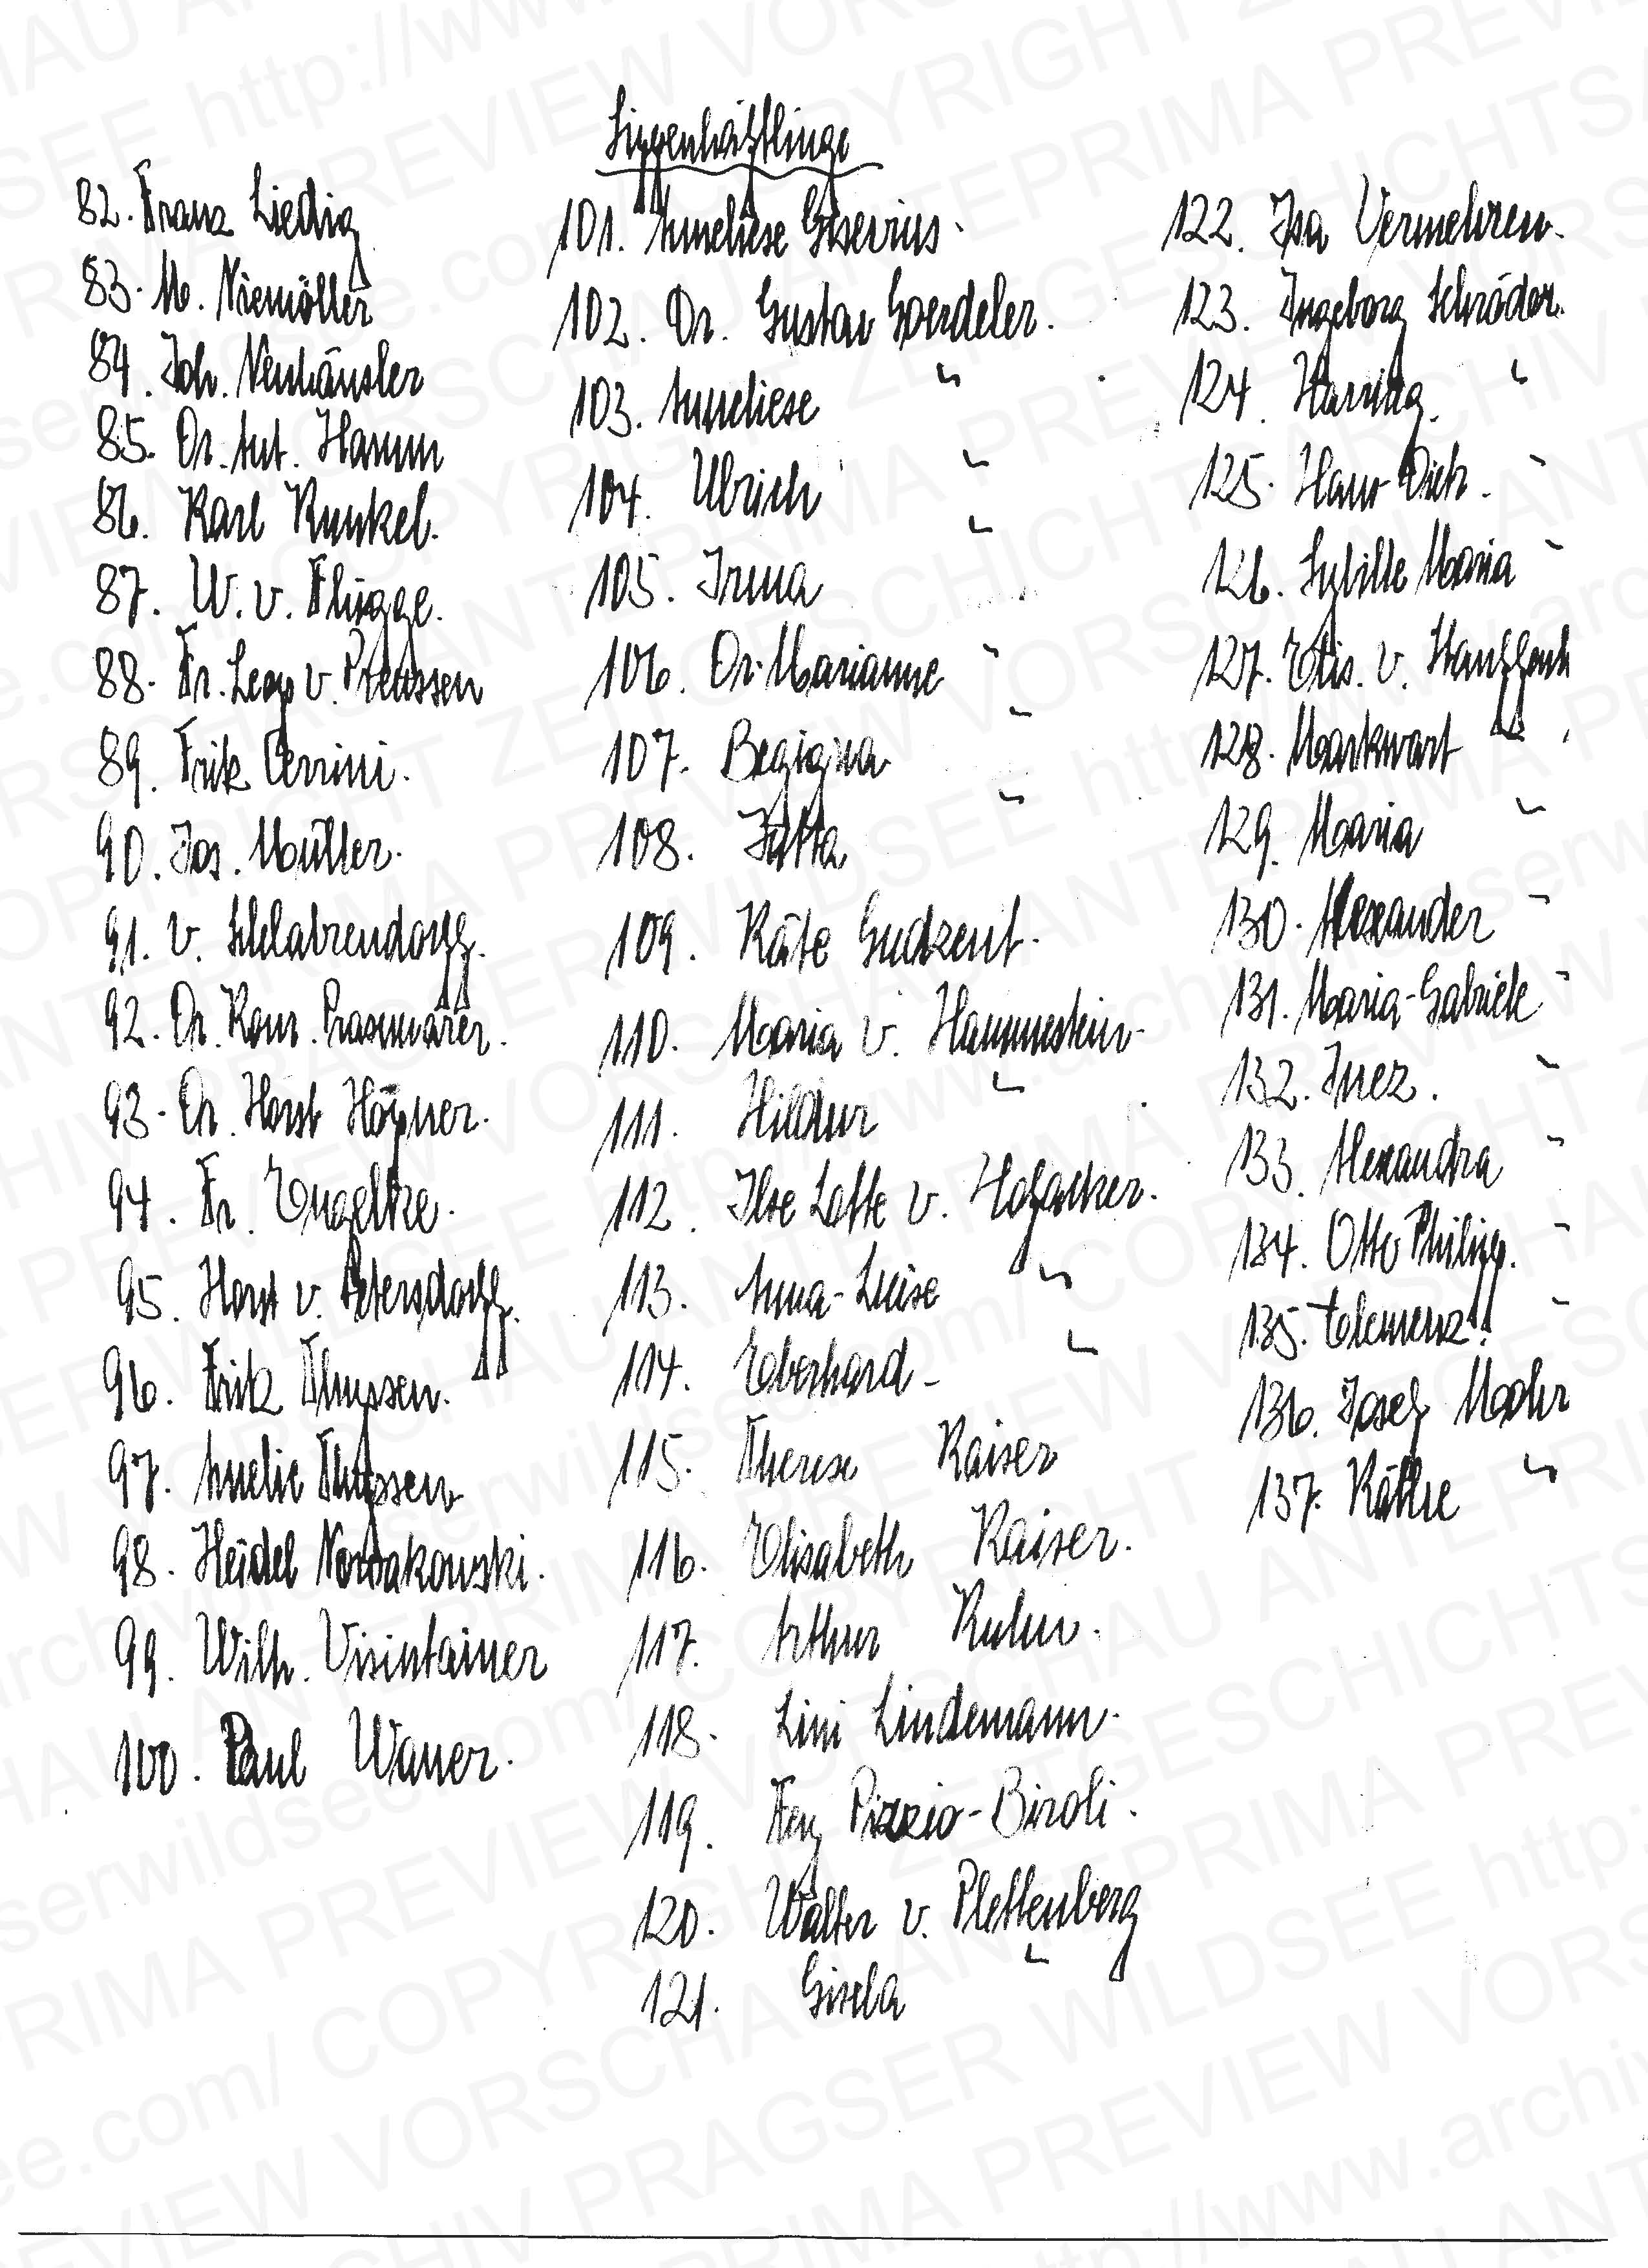 82. Franz Liedig
83. M. Niemöller
84. Joh. Neuhäusler
85. Dr. Ant. Hamm
86. Karl Kunkel.
87. W. v. Flügge.
88. Fr. Leop v. Preussen
89. Fritz Cerrini.
90. Jos. Müller.
91. v. Schlabrendorff.
92. Dr. Konr. Praxmarer.
93. Dr. Horst Höpner.
94. Fr. Engelke.
95. Horst v. Petersdorff.
96. Fritz Thyssen.
97. Amelie Thyssen
98. Heidel Nowakowski.
99. Wilh. Visintainer
100. Paul Wauer.
Sippenhäftlinge
101. Anneliese Gisevius.
102. Dr. Gustav Goerdeler.
103. Anneliese "
104. Ulrich "
105. Irma "
106. Dr. Marianne "
107. Begigna "
108. Jutta "
109. Käte Gudzent.
110. Maria v. Hammerstein
111. Hildur "
112. Ilse Lotte v. Hofacker.
113. Anna-Luise "
114. Eberhard "
115. Therese Kaiser
116. Elisabeth Kaiser.
117. Arthur Kuhn.
118. Lini Lindemann.
119. Fey Pizzio-Biroli.
120. Walter v. Plettenberg
121. Gisela "
122. Isa Vermehren.
123. Ingeborg Schröder.
124. Harring. "
125. Hans Dietr. "
126. Sybille Maria "
127. Elis. v. Stauffenb
128. Markwart "
129. Maria "
130. Alexander "
131. Maria-Gabriele "
132. Inez. "
133. Alexandra "
134. Otto Philipp. "
135. Clemenz. "
136. Josef Mohr
137. Käthe "
ANTEPRIMA PREVIEW VORSCHAU COPYRIGHT ZEITGESCHICHTSARCHIV PRAGSER WILDSEE http://www.archivpragserwildsee.com/